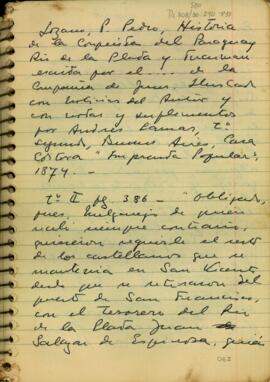 580
Lozano, P. Pedro, Historia
de la Conquista del Paraguay
Rio de la Plata y Tucuman
escrita por el .... de la
Compania de Jesus. Ilustrada
con noticias del Autor y
con notas y suplementos
por Andrés Lamas, tº
segundo, Buenos Aires, Casa
Editora "Imprenta Popular",
1874. -
tº II pg. 386 - "Obligado,
pues, de quien
aunque contrario,
requerir el resto
de los castellanos que se
mantenia en San Vicente
desde que se retiraron del
puerto de San Francisco,
con el Tesorero del Rio
de la Plata Juan de
Salazar de Espinosa, quien
063